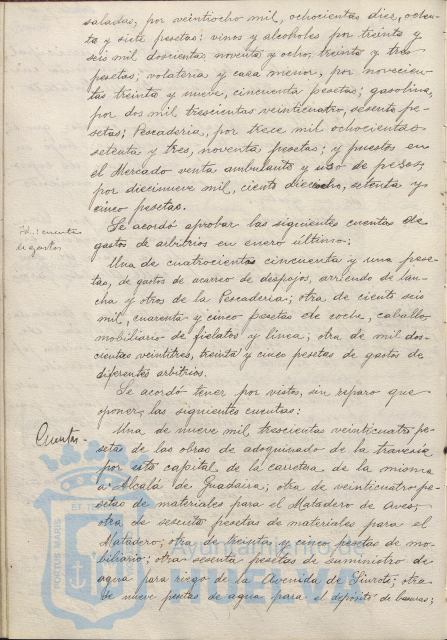 saladas, por veintiocho mil, ochocientas diez, ochen-
ta y siete pesetas: vinos y alcoholes por treinta y
seis mil doscientas, noventa y ocho, treinta y tres
pesetas; volateria y caza menor, por novecien-
tas treinta y nueve, cincuenta pesetas; gasolina,
por dos mil trescientas veinticuatro, sesenta pe-
setas; Pescaderia, por trece mil ochocientas
setenta y tres, noventa pesetas; y puestos en
el Mercado venta ambulante y uso de pesos,
por diecinueve mil, ciento dieciocho, setenta y
cinco pesetas.
Se acordó aprobar las siguientes cuentas de
Id.: cuenta
de gastos
gastos de arbitrios en enero último:
Una de cuatrocientas cincuenta y una pese-
tas, de gastos de acarreo de despojos, arriendo de lan-
cha y otros de la Pescaderia; otra de ciento seis
mil, cuarenta y cinco pesetas de coche, caballo,
mobiliario de fielatos y linea; otra de mil dos-
cientas veintitres, treinta y cinco pesetas de gastos de
diferentes arbitrios.
Se acordó tener por vistas, sin reparo que
oponer, las siguientes cuentas:
Cuentas.-
Una de nueve mil trescientas veinticuatro pe-
setas de las obras de adoquinado de la travesia
por esta capital de la carretera de la misma
a Alcalá de Guadaira; otra de veinticuatro pe-
setas de materiales para el Matadero de Aves;
otra de sesenta pesetas de materiales para el
Matadero; otra de treinta y cinco pesetas de mo-
biliario; otra sesenta pesetas de suministro de
agua para riego de la Avenida de Siurot; otra
de nueve pesetas de agua para el depósito de basuras;
PORTUS MARIS
Ayuntamiento de
HUELVA